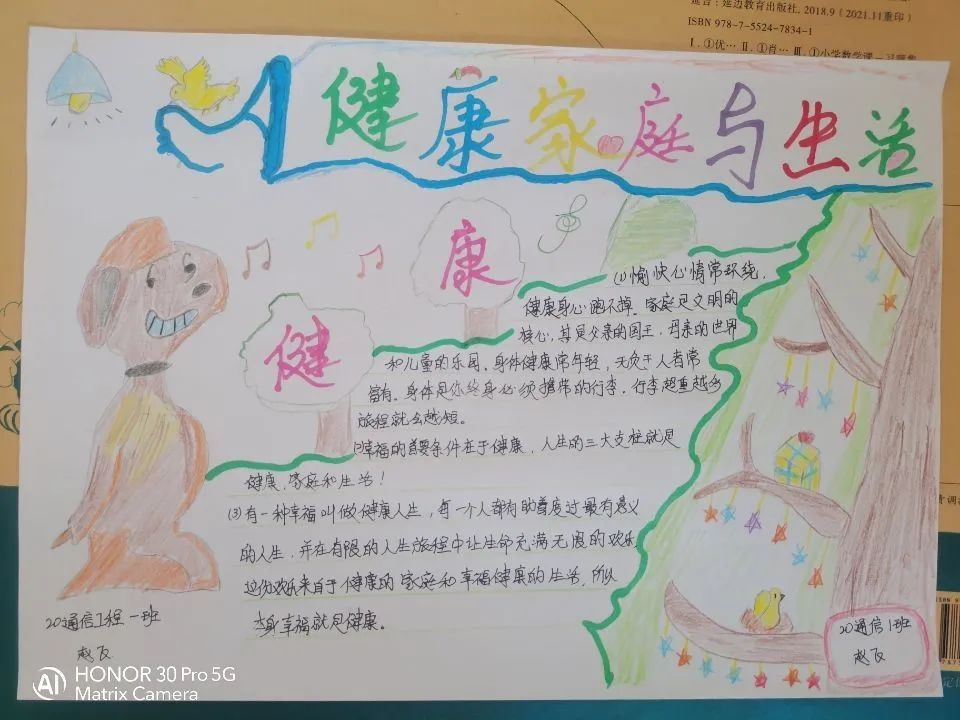 进合:延边教育出版社, 2018.9 (2021.11重印)
ISBN 978-7-5524-7834-1
Ⅰ.①优… Ⅱ.①肖… Ⅲ.①小学数学课-习题集
健康家庭与生活
康
健
(1)愉快心情常环绕,
健康身心跑不掉。家庭是文明的
核心,其是父亲的国王,母亲的世界
和儿童的乐园。身体健康常年轻,无负于人者常
富有。身体是你终身必须携带的行李。行李超重越多
旅程就会越短。
(2)幸福的首要条件在于健康,人生的三大支柱就是
健康、家庭和生活!
(3)有一种幸福叫做健康人生,每一个人都有助尊度过最有意义
的人生,并在有限的人生旅程中让生命充满无限的欢乐,
这份欢乐来自于健康的家庭和幸福健康的生活,所以
本身幸福就是健康。
20通信工程一班
赵
20通信1班
赵
AI HONOR 30 Pro 5G
Matrix Camera